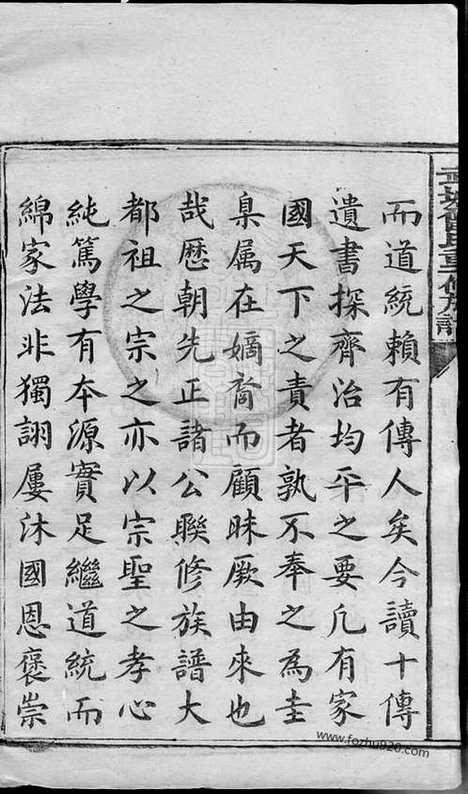 而道統賴有傳人矣今讀十傳
遺書探齊治均平之要凡有家
國天下之責者孰不奉之為圭
臬属在嫡裔而顧昧厥由來也
哉歴朝先正諸公聯修族譜大
都祖之宗之亦以宗聖之孝心
純篤學有本源實足繼道統而
綿家法非獨詡屢沐國恩褒崇
www.fozhu920.com